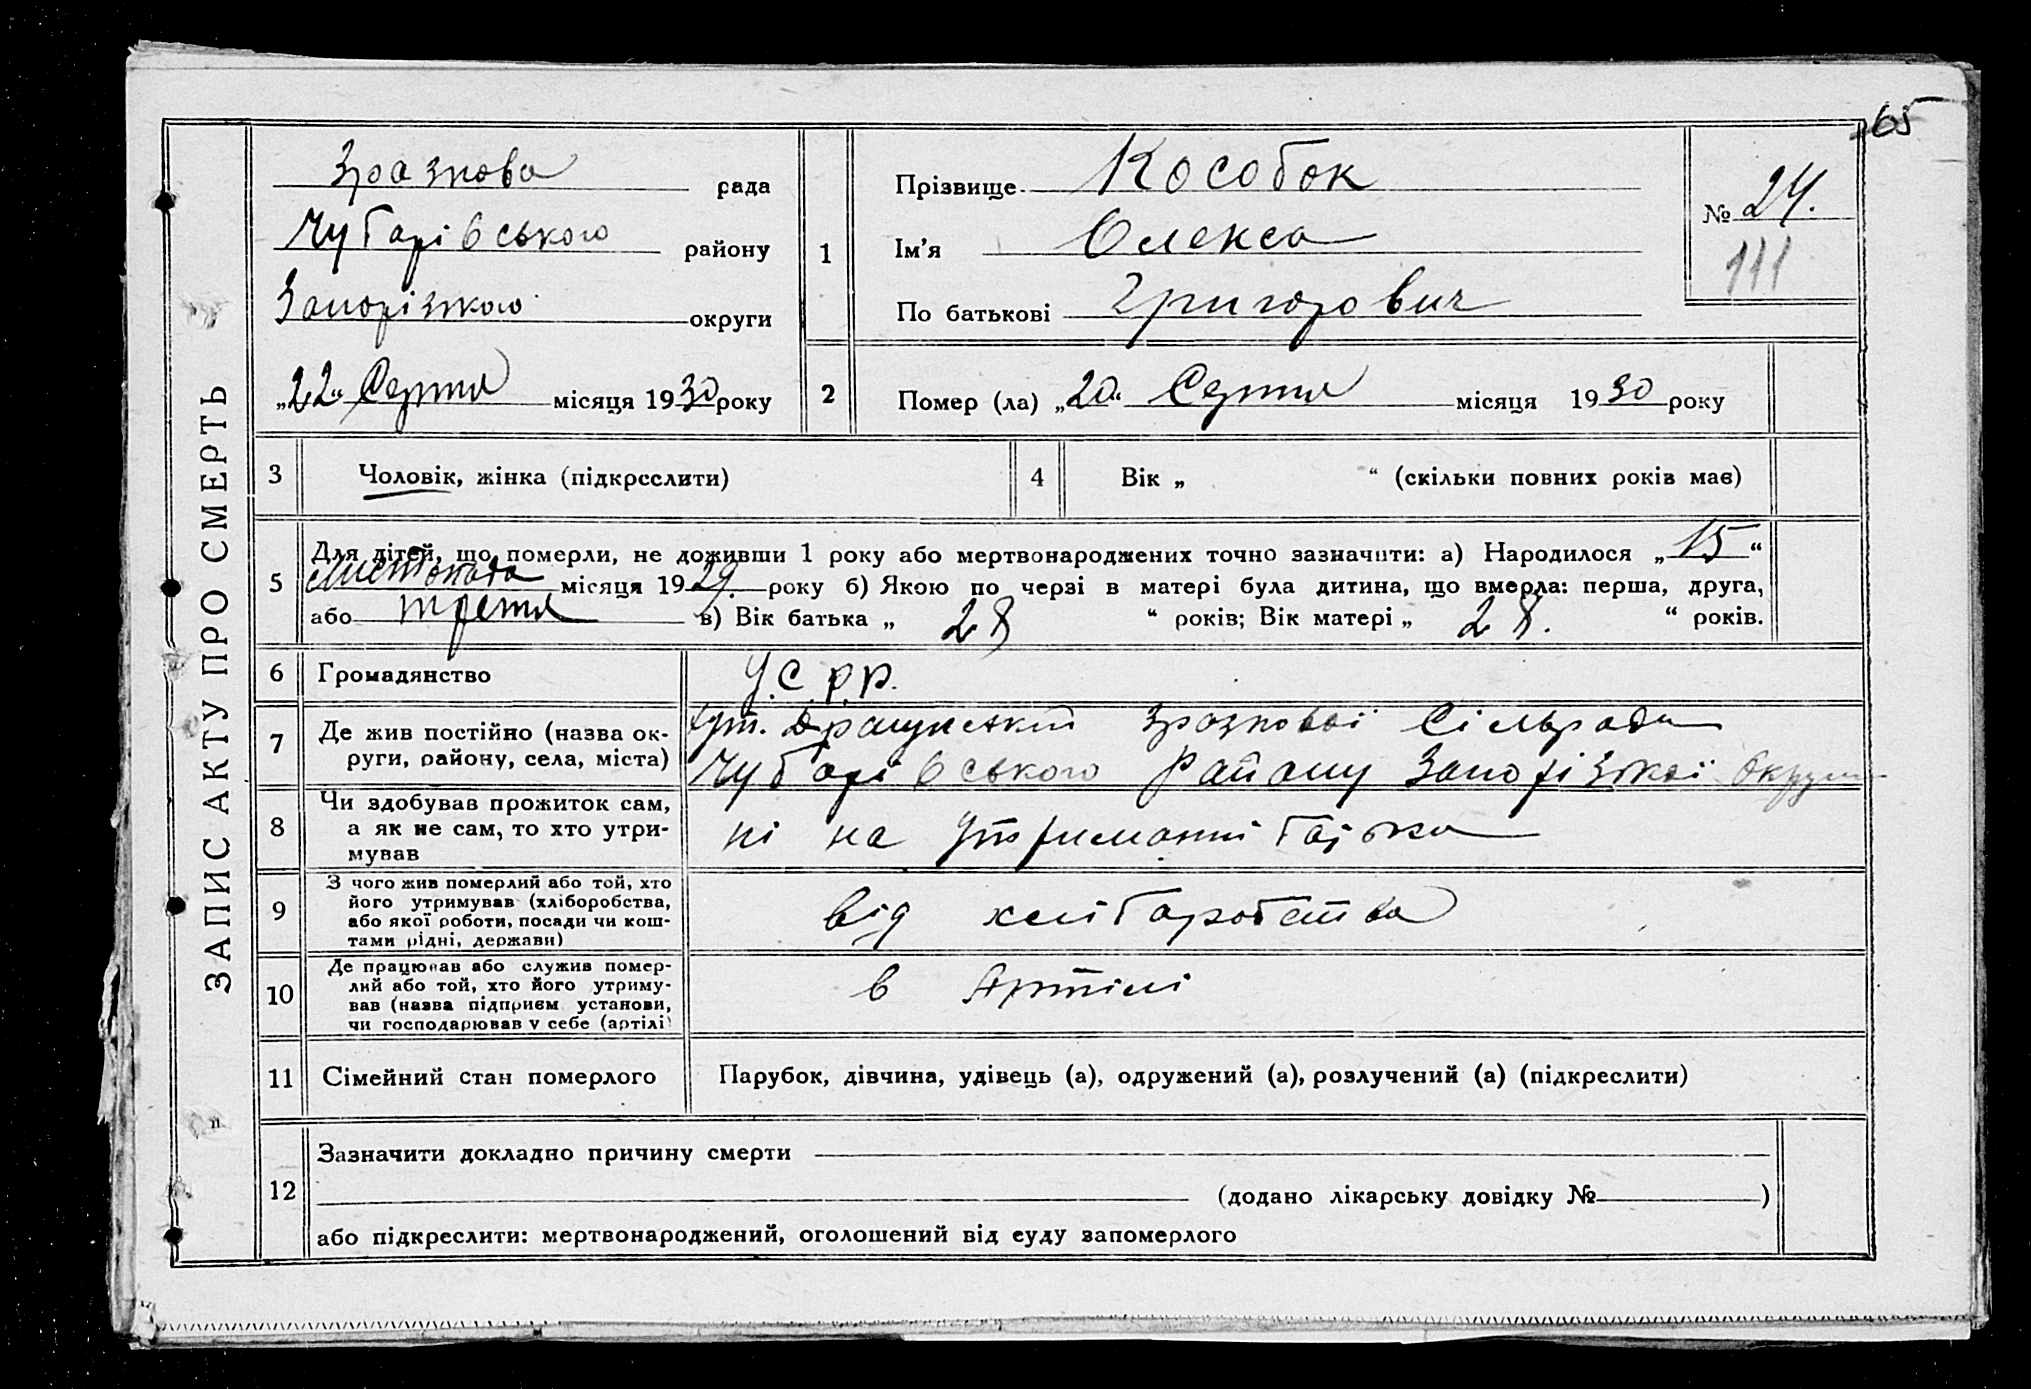 65
ЗАПИС АКТУ ПРО СМЕРТЬ
Зразкова рада
Чубарівського району
Запорізького округи
„22" Серпня місяця 1930 року
1
Прізвище Кособок
Ім'я Олекса
По батькові Григорович
№ 24.
111
2 Помер (ла) „20" Серпня місяця 1930 року
3 Чоловік, жінка (підкреслити)
4 Вік „ " (скільки повних років має)
5 Для дітей, що померли, не доживши 1 року або мертвонароджених точно зазначити: а) Народилося „15"
Листопада місяця 1929. року б) Якою по черзі в матері була дитина, що вмерла: перша, друга,
або третя в) Вік батька „ 28 " років; Вік матері „ 28. " років.
6 Громадянство У.С.Р.Р.
7 Де жив постійно (назва ок-
руги, району, села, міста)
Зразкової Сільради
Чубарівського Району Запорізької Округи
8 Чи здобував прожиток сам,
а як не сам, то хто утри-
мував
ні на утриманні батька
9 З чого жив померлий або той, хто
його утримував (хліборобства,
або якої роботи, посади чи кош-
тами рідні, держави)
від хліборобства
10 Де працював або служив помер-
лий або той, хто його утриму-
вав (назва підприєм. установи,
чи господарював у себе (артілі)
в Артілі
11 Сімейний стан померлого Парубок, дівчина, удівець (а), одружений (а), розлучений (а) (підкреслити)
12 Зазначити докладно причину смерти
(додано лікарську довідку № )
або підкреслити: мертвонароджений, оголошений від суду запомерлого